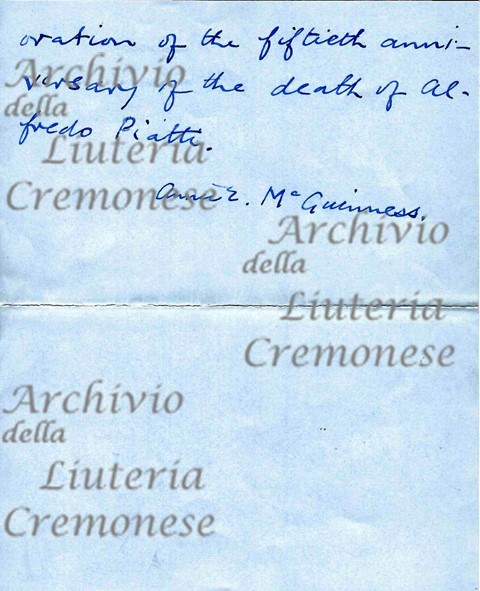 oration of the fiftieth anni-
versary of the death of Al-
fredo Piatti.
E. McGuinness.
Archivio
della
Liuteria
Cremonese
Archivio
della
Liuteria
Cremonese
Archivio
della
Liuteria
Cremonese